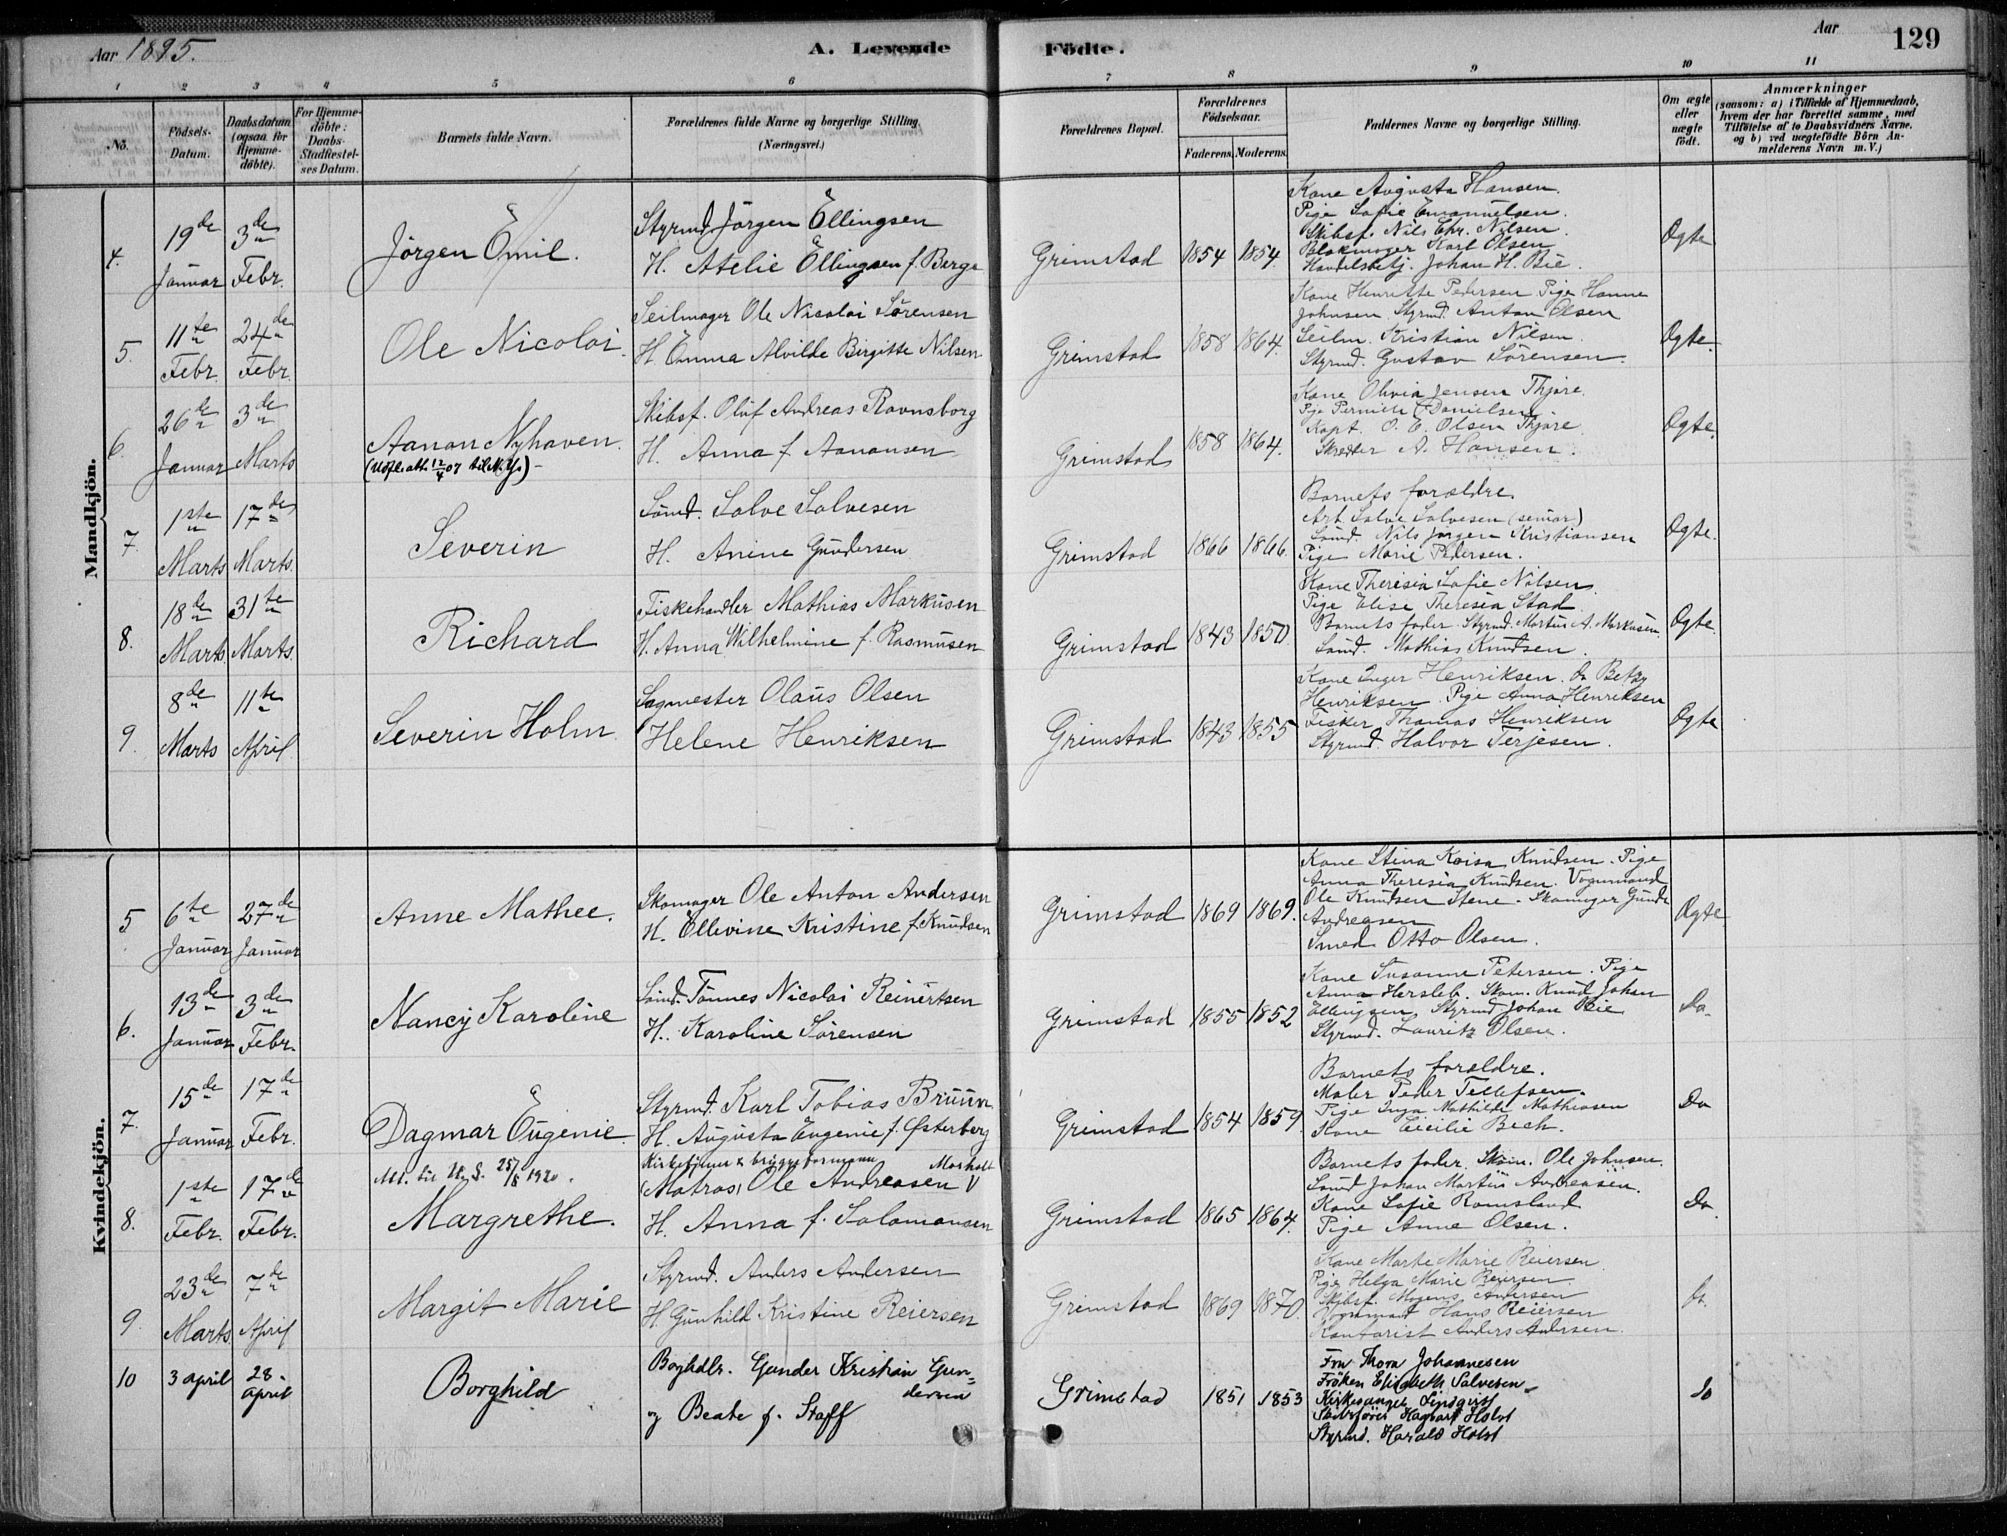 Aar 1895.
A. Levende Födte.
Aar
129
1 2 3 4 5 6 7 8 9 10 11
No.
Födsels-Datum.
Daabsdatum (ogsaa for Hjemme-döbte).
For Hjemme-döbte: Daabs-Stadfæstel-ses Datum.
Barnets fulde Navn.
Forældrenes fulde Navne og borgerlige Stilling.
(Næringsvei.)
Forældrenes Bopæl.
Forældrenes Födselsaar.
Faderens. Moderens.
Faddernes Navne og borgerlige Stilling.
Om ægte eller uægte födt.
Anmærkninger
(saasom: a) i Tilfælde af Hjemmedaab, hvem der har forrettet samme, med Tilföielse af to Daabsvidners Navne, og b) ved uægtefödte Börn An-melderens Navn m.V.)
Mandkjön.
4. 19de Januar 3de Febr.
Jörgen Emil.
Styrmd. Jörgen Ellingsen
H. Atelie Ellingsen f. Berge
Grimstad 1854 1854.
Kone Augusta Hansen.
Pige Sofie Emanuelsen.
Skibsf. Nils Chr. Nilsen
Blokmager Karl Olsen
Handelsbetj. Johan H. Bie.
Ægte
5. 11te Febr. 24de Febr.
Ole Nicolai.
Seilmager Ole Nicolai Sörensen
H. Emma Alvilde Birgitte Nilsen
Grimstad 1858 1864.
Kone Henriette Pedersen Pige Hanne
Johnsen. Styrmd. Anton Olsen
Seilm. Kristian Nilsen.
Styrmd. Gustav Sörensen.
Ægte.
6. 26de Januar 3de Marts
Aanon Nyhaven.
(Udfl. att. 12/4 07 til N.Y.)
Skibsf. Oluf Andreas Ravnsborg
H. Anna f. Aanonsen
Grimstad 1858 1864.
Kone Olivia Jensen Thjøre.
Pige Pernille Danielsen
Kapt. O. E. Olsen Thjøre
Skrædder A. Hansen.
Ægte.
7. 1ste Marts 17de Marts.
Severin
Sömd. Salve Salvesen
H. Anine Gundersen
Grimstad 1866 1866.
Barnets forældre.
Arb. Salve Salvesen (senior)
Sömd. Nils Jörgen Kristiansen
Pige Marie Pedersen.
Ægte.
8. 18de Marts 31te Marts.
Richard
Fiskehandler Mathias Markusen
H. Anna Wilhelmine f. Rasmusen
Grimstad 1843 1850.
Kone Theresia Sofie Nilsen.
Pige Elise Theresia Stad
Barnets fader. Styrmd. Martin A. Markusen.
Sömd. Mathias Knudsen.
Ægte.
9. 8de Marts 11te April
Severin Holm
Sagmester Olaus Olsen
Helene Henriksen
Grimstad 1843 1855
Kone Inger Henriksen. do Betzy
Henriksen. Pige Anna Henriksen
Fisker Thomas Henriksen
Styrmd. Halvor Terjesen.
Ægte
Kvindekjön.
5. 6te Januar 27de Januar
Anne Mathee.
Skomager Ole Anton Andersen
H. Ellevine Kristine f. Knudsen
Grimstad 1869 1869.
Kone Stina Kaisa Knudsen. Pige
Anna Theresia Knudsen. Vognmand
Ole Knudsen Stene. Skomager Gunde
Andreasen
Smed Otto Olsen.
Ægte
6. 13de Januar 3de Febr.
Nancy Karoline
Sömd. Tönnes Nicolai Reinertsen
H. Karoline Sörensen
Grimstad 1855 1852
Kone Susanne Petersen. Pige
Anna Hersleb. Skom. Knud Johan
Ellingsen, Styrmd Johan Bie
Styrmd. Lauritz Olsen.
Do.
7. 15de Januar 17de Febr.
Dagmar Eugenie
Styrmd. Karl Tobias Bruun
H. Augusta Eugenie f. Østerberg
Grimstad 1854 1859.
Barnets forældre.
Maler Peder Tellefsen.
Pige Inga Mathilde Mathiasen
Kone Cicilie Bech.
Do
8. 1ste Febr. 17de Febr.
Att. til U.S. 25/8 1920.
Margrethe.
Kirketjener & bryggeformann Morholt
(Matros) Ole Andreasen V
H. Anna f. Salomonsen
Grimstad 1865 1864.
Barnets fader. Skom. Ole Johnsen.
Sömd Johan Martin Andreasen.
Kone Sofie Romsland
Pige Anne Olsen.
Do.
9. 23de Marts 7de April
Margit Marie
Styrmd. Anders Andersen
H. Gunhild Kristine Reiersen
Grimstad 1869 1870.
Kone Marte Marie Reiersen
Pige Helga Marie Reiersen.
Skibsf. Mogens Andersen
Vognmand Hans Reiersen
Kontorist Anders Andersen.
10 3 april 28. april
Borghild
Boghdlr. Gunder Kristian Gun-
dersen
og Beate f. Staff
Grimstad 1851 1853
Fru Thora Johannesen
Fröken Elisabeth Salvesen
Kirkesanger Lindqvist
Skibsförer Hagbart Holst
Styrmd. Harald Holst
do